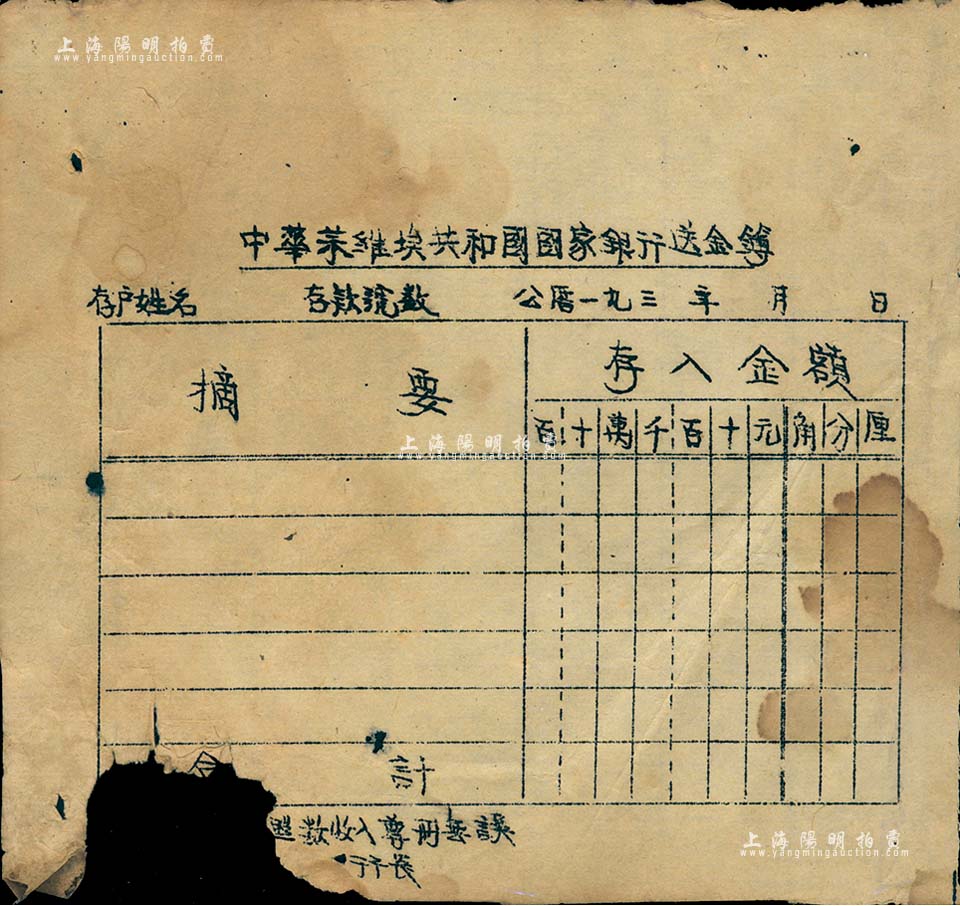 上海陽明拍賣
www.yangmingauction.com
中華苏維埃共和國國家銀行送金簿
存户姓名 存款號数 公曆一九三 年 月 日
摘 要 存入金額
百 十 萬 千 百 十 元 角 分 厘
上海陽明拍賣
www.yangmingauction.com
合 計
照数收入尊册無誤
行長
上海陽明拍賣
www.yangmingauction.com